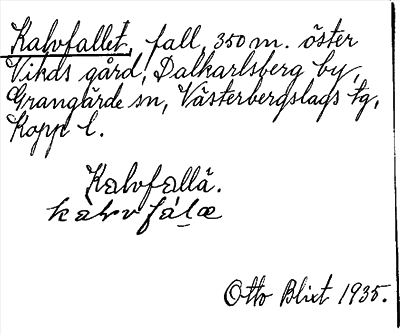 Kalvfallet, fall, 350 m. öster
Vikds gård, Dalkarlsberg by,
Grangärde sn, Västerbergslags tg,
Kopp l.
Kalvfallä.
kalvfálæ
Otto Blixt 1935.